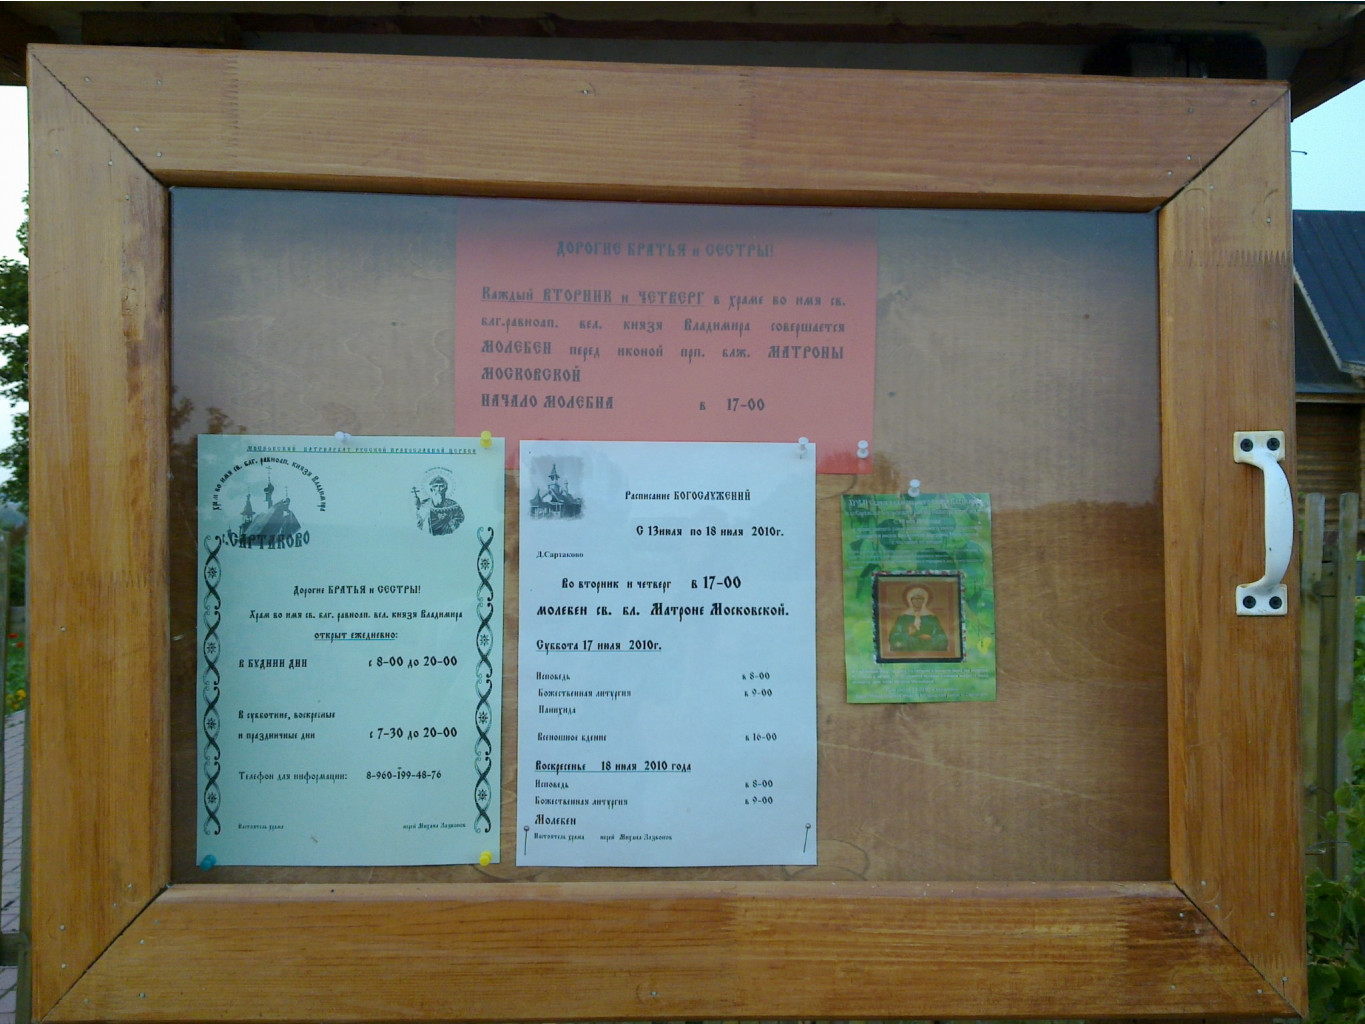 ДОРОГИЕ БРАТЬЯ и СЕСТРЫ!
Каждый ВТОРНИК и ЧЕТВЕРГ в храме во имя св.
благ.равноап. вел. князя Владимира совершается
МОЛЕБЕН перед иконой прп. блж. МАТРОНЫ
МОСКОВСКОЙ
НАЧАЛО МОЛЕБНА в 17-00
МОСКОВСКИЙ ПАТРИАРХАТ РУССКОЙ ПРАВОСЛАВНОЙ ЦЕРКВИ
Храм во имя св. благ. равноап. князя Владимира
с.Сартаково
Дорогие БРАТЬЯ и СЕСТРЫ!
Храм во имя св. благ. равноап. вел. князя Владимира
открыт ежедневно:
в буднии дни с 8-00 до 20-00
В субботние, воскресные
и праздничные дни с 7-30 до 20-00
Телефон для информации: 8-960-199-48-76
Настоятель храма иерей Михаил
Расписание БОГОСЛУЖЕНИЙ
С 13июля по 18 июля 2010г.
Д.Сартаково
Во вторник и четверг в 17-00
молебен св. бл. Матроне Московской.
Суббота 17 июля 2010г.
Исповедь в 8-00
Божественная литургия в 9-00
Панихида
Всенощное бдение в 16-00
Воскресенье 18 июля 2010 года
Исповедь в 8-00
Божественная литургия в 9-00
Молебен
Настоятель храма иерей Михаил